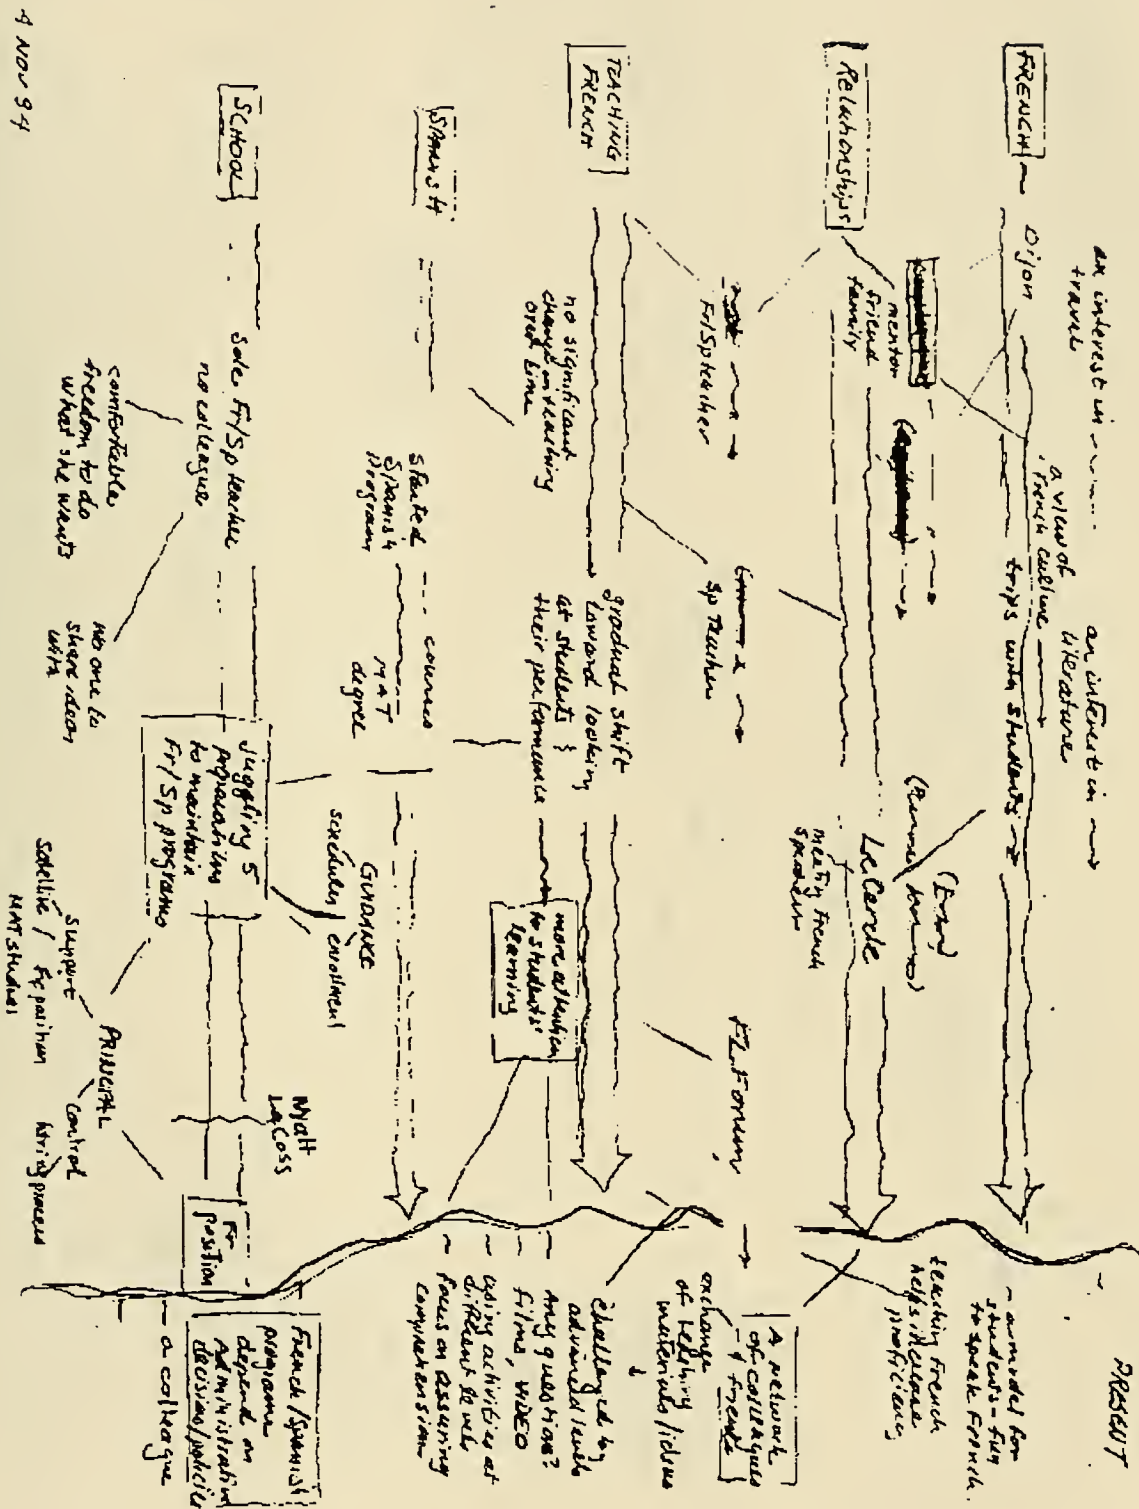 PRESENT
an interest in
travel
an interest in
literature
a view of
French culture
FRENCH
Dijon
trips with students
- a model for
students - fun
to speak French.
teaching French
helps increase
proficiency
Relationships
mentor
friend
family
Le Cercle
meeting French
speakers
A network
of colleagues
+ friends
exchange
of teaching
materials/ideas
Fr/Sp teacher
Sp Teacher
FL Forum
TEACHING
FRENCH
no significant
change in teaching
over time
gradual shift
toward looking
at students &
their performance
more attention
to students'
learning
challenged by
advanced levels
- any questions?
- films, VIDEO
- using activities at
different levels
- focus on assuring
comprehension
SPANISH
Started
Spanish
Program
courses
MAT
degree
GUIDANCE
scheduling/enrollment
SCHOOL
Sole Fr/Sp teacher
no colleague
comfortable
freedom to do
what she wants
no one to
share ideas
with
Juggling 5
preparations
to maintain
Fr/Sp programs
Wyatt
LaCoss
PRINCIPAL
support
control
satellite/
MAT studies
Fr position
hiring process
Fr
position
French/Spanish
programs
depend on
Administration
decisions/policies
- a colleague
4 NOV 94